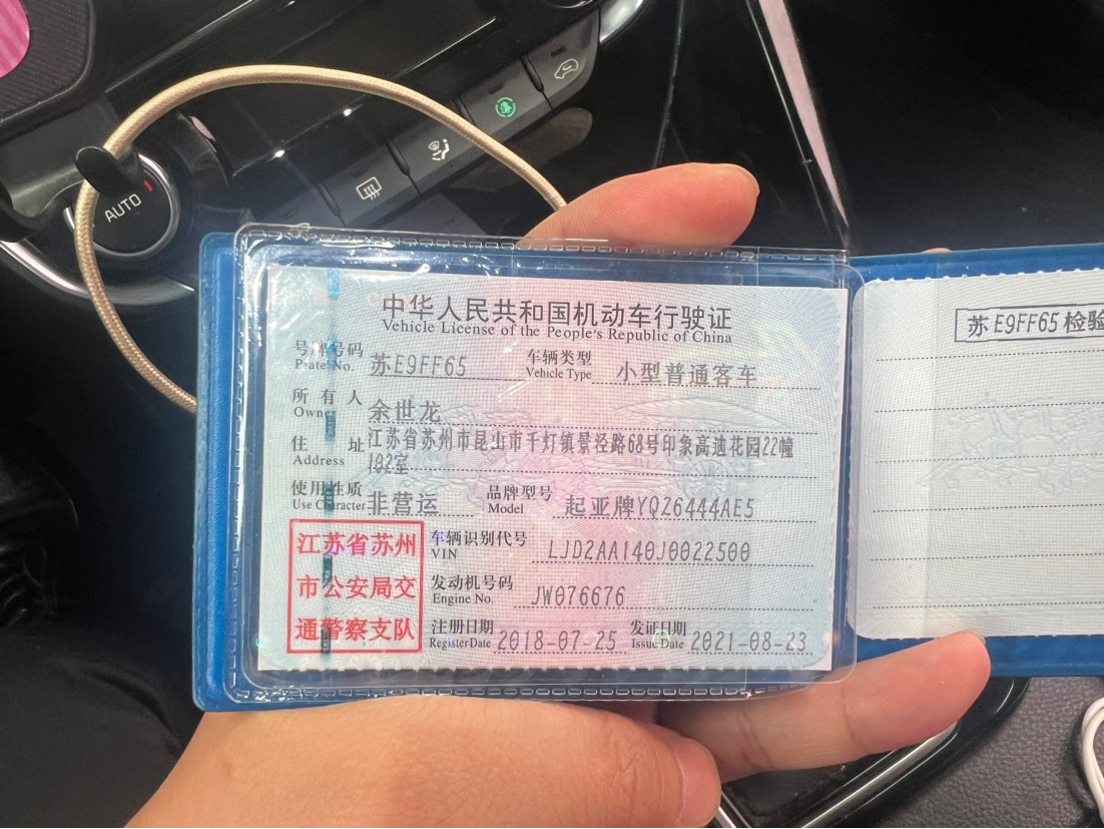 AUTO
中华人民共和国机动车行驶证
Vehicle License of the People's Republic of China
号牌号码 苏E9FF65 车辆类型 小型普通客车
Plate No. Vehicle Type
所有人 余世龙
Owner
住址 江苏省苏州市昆山市千灯镇景径路68号印象高迪花园22幢
Address 102室
使用性质 非营运 品牌型号 起亚牌YQZ6444AE5
Use Character Model
江苏省苏州
市公安局交
通警察支队
车辆识别代号 LJD2AA140J0022500
VIN
发动机号码 JW076676
Engine No.
注册日期 2018-07-25 发证日期 2021-08-23
Register Date Issue Date
苏E9FF65 检验